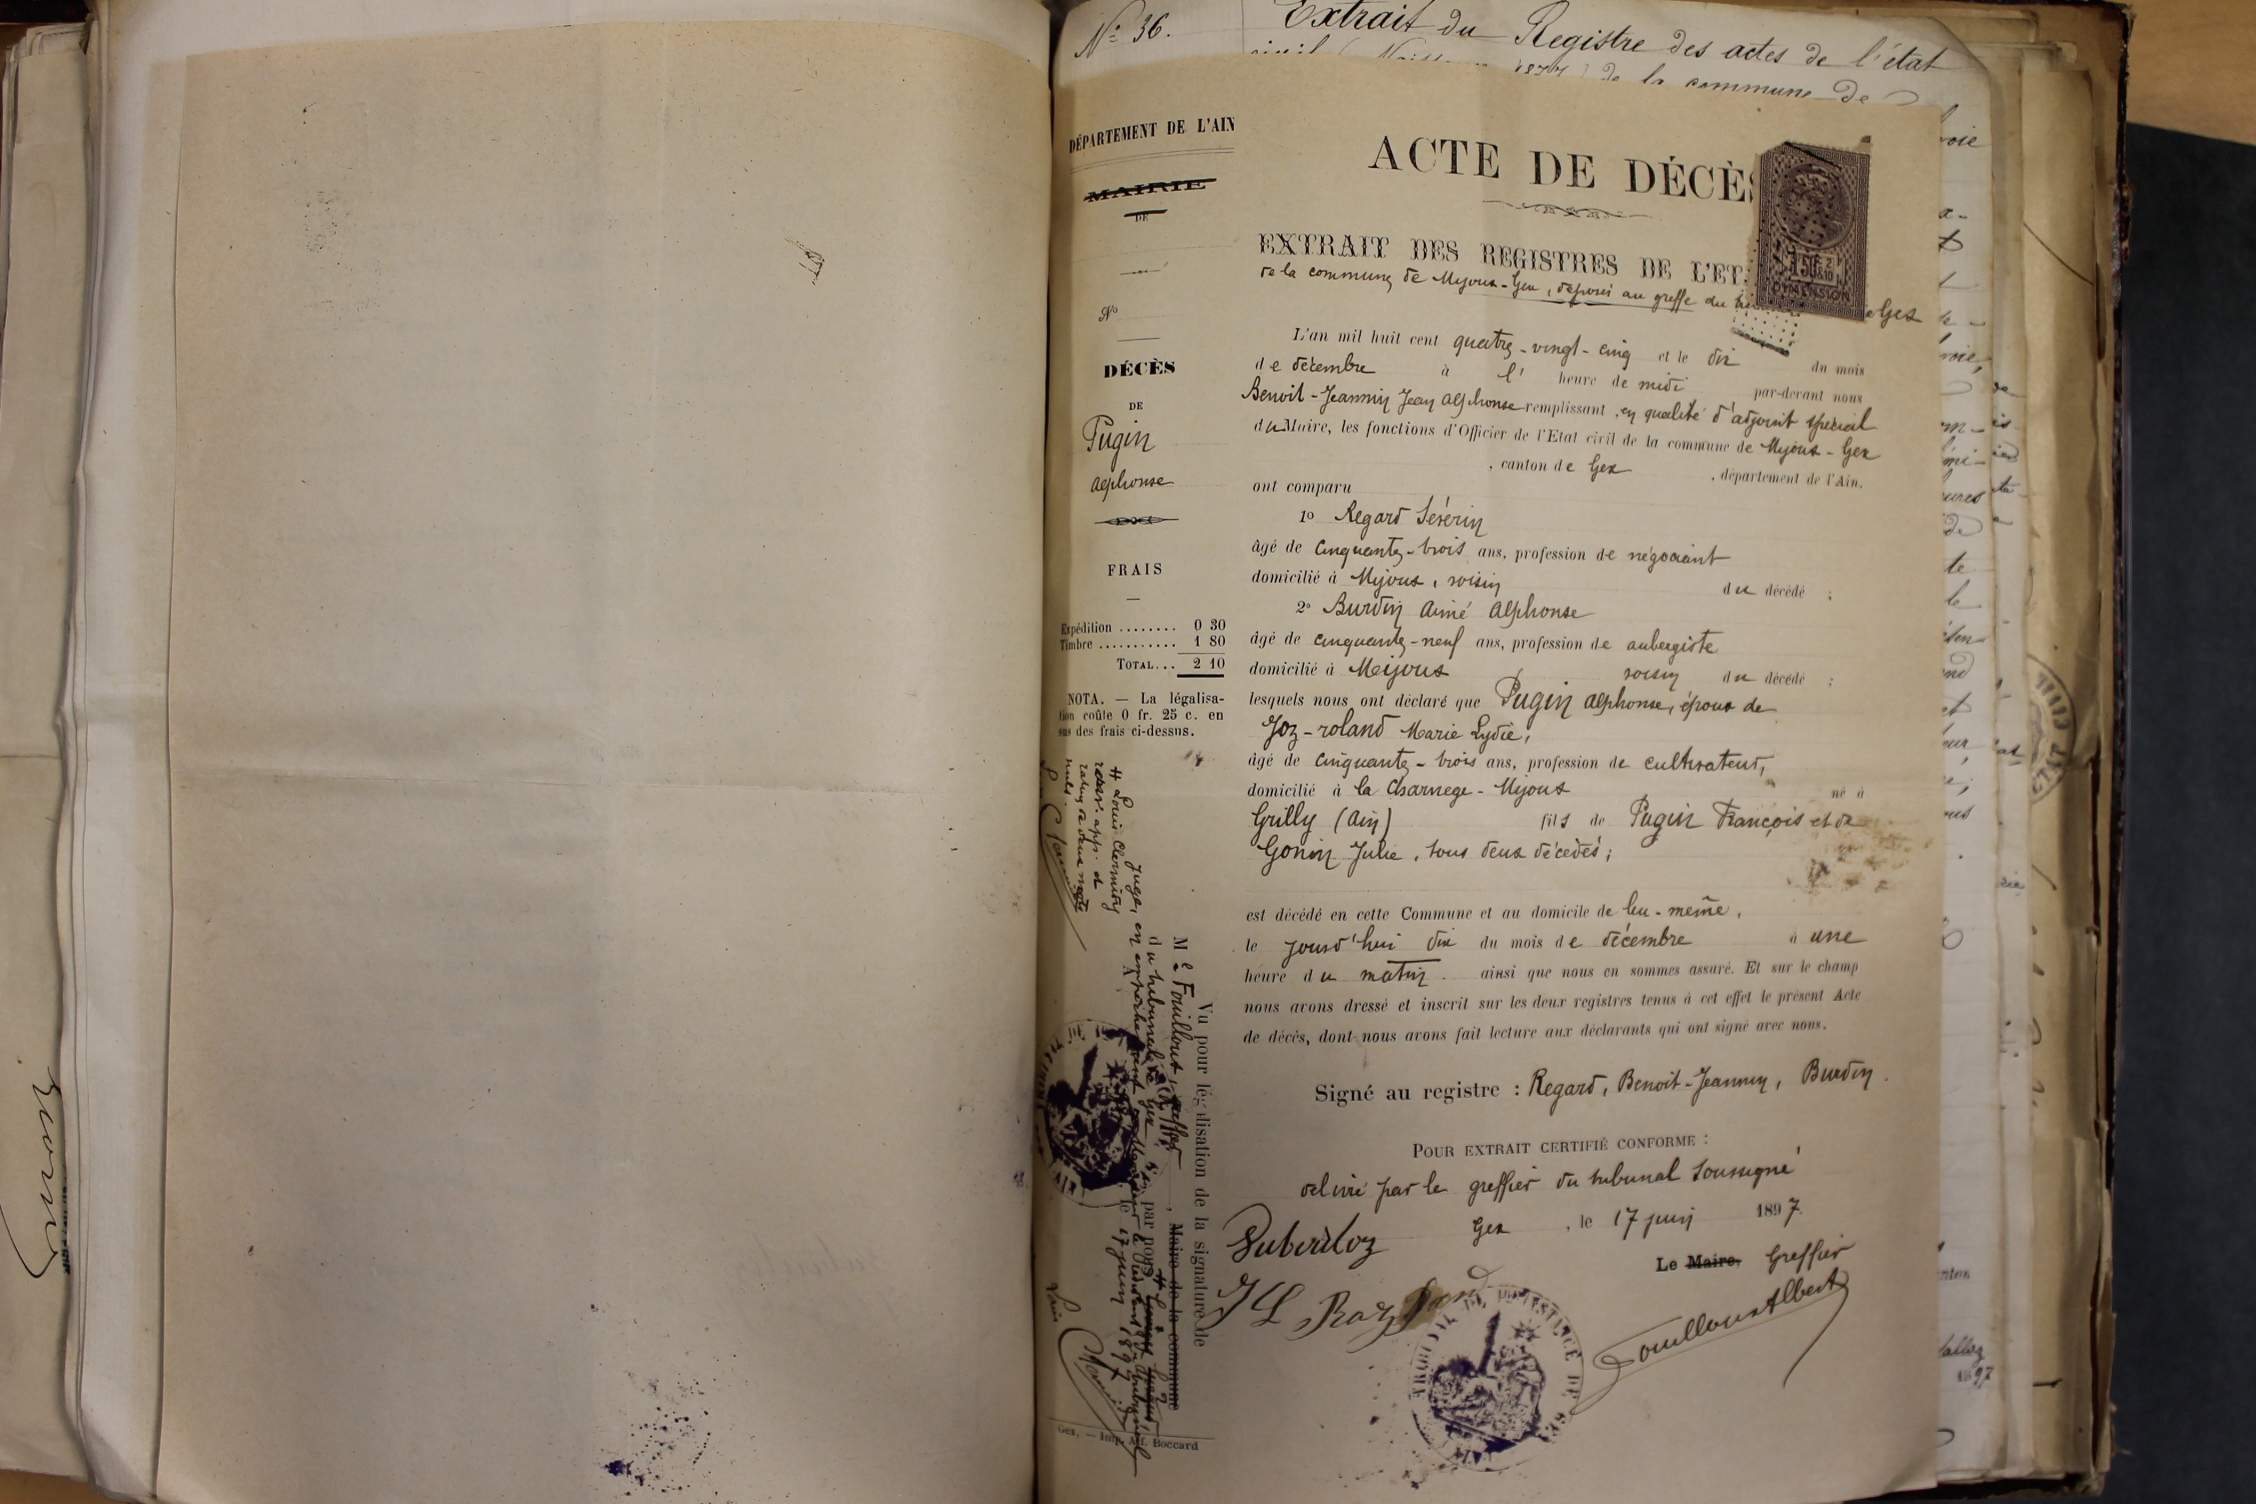 N° 36.
Extrait du Registre des actes de l'état
de la commune de
DÉPARTEMENT DE L'AIN
MAIRIE
DE
N°
DÉCÈS
DE
Pugin
Alphonse
FRAIS
Expédition ........ 0 30
Timbre ........... 1 80
TOTAL... 2 10
NOTA. — La légalisa-
tion coûte 0 fr. 25 c. en
sus des frais ci-dessus.
ACTE DE DÉCÈS
EXTRAIT DES REGISTRES DE L'ET
de la commune de Mijoux-Gex, déposés au greffe du Gex
DIMENSION
L'an mil huit cent quatre-vingt-cinq et le dix du mois
de décembre à l' heure de midi par-devant nous
Benoit-Jeannin Jean Alphonse remplissant, en qualité d'adjoint spécial
du Maire, les fonctions d'Officier de l'Etat civil de la commune de Mijoux-Gex
, canton de Gex , département de l'Ain.
ont comparu
1° Regard Sévérin
âgé de cinquante-trois ans, profession de négociant
domicilié à Mijoux, voisin du décédé ;
2° Burdin Aimé Alphonse
âgé de cinquante-neuf ans, profession de aubergiste
domicilié à Meijoux voisin du décédé ;
lesquels nous ont déclaré que Pugin Alphonse, époux de
Joz-roland Marie Lydie,
âgé de cinquante-trois ans, profession de cultivateur,
domicilié à la Charnege-Mijoux né à
Grilly (Ain) fils de Pugin François et de
Gonin Julie, tous deux décédés ;
est décédé en cette Commune et au domicile de lui-même,
le jourd'hui dix du mois de décembre à une
heure du matin. ainsi que nous en sommes assuré. Et sur le champ
nous avons dressé et inscrit sur les deux registres tenus à cet effet le présent Acte
de décès, dont nous avons fait lecture aux déclarants qui ont signé avec nous.
Signé au registre : Regard, Benoit-Jeannin, Burdin.
POUR EXTRAIT CERTIFIÉ CONFORME :
délivré par le greffier du tribunal soussigné
Gex , le 17 juin 1897.
Le Maire, Greffier
Fouilloux Albert
Vu pour légalisation de la signature de
Me Fouilloux, greffier, Maire de la commune
du tribunal de Gex par nous
le 17 juin 1897
Gex, — Imp. Alf. Boccard